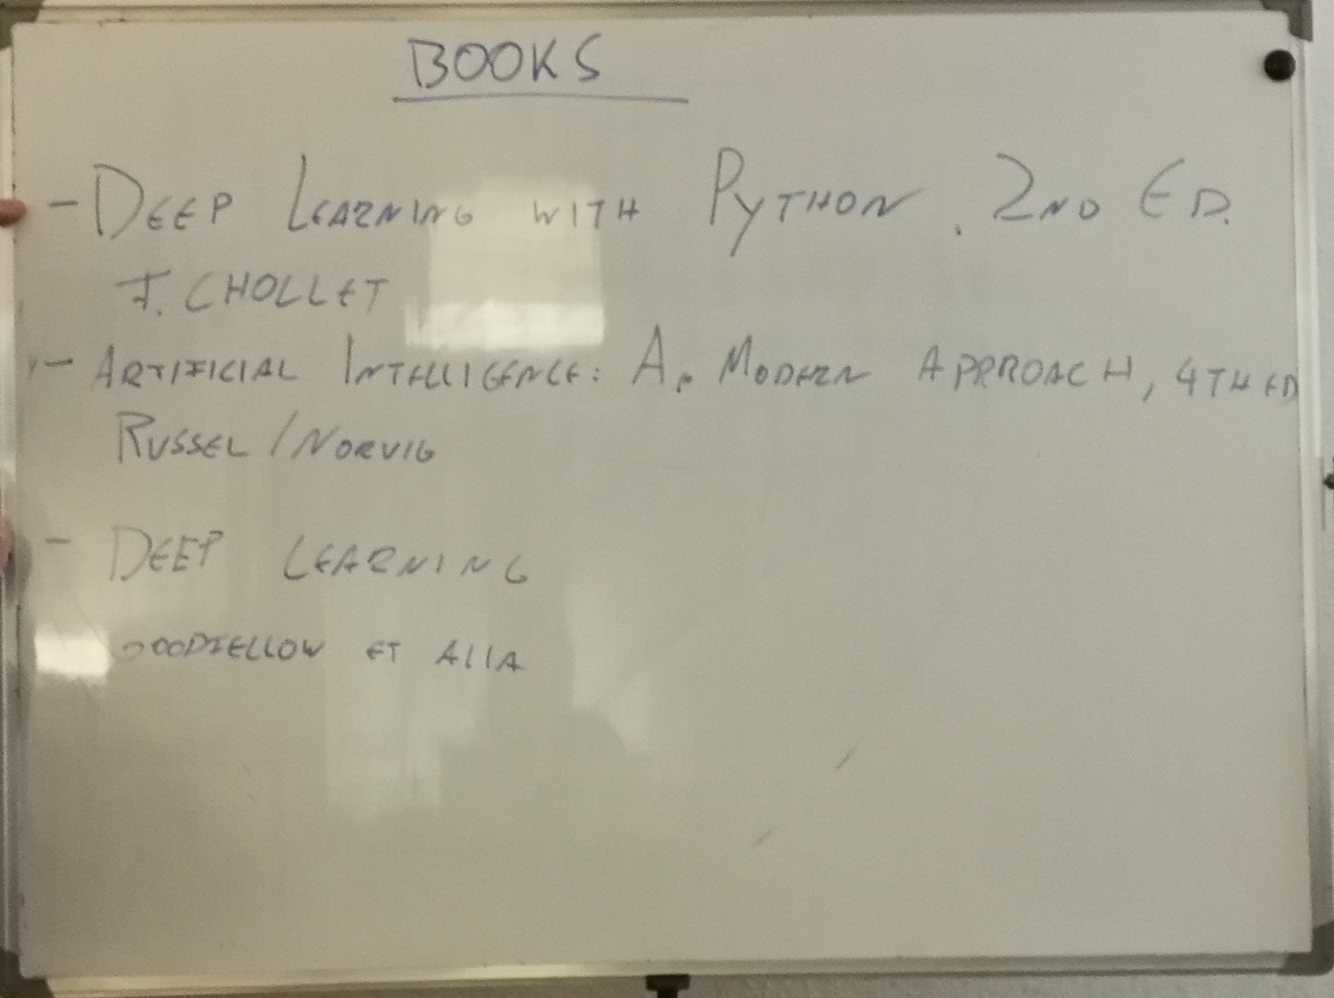 BOOKS
- DEEP LEARNING WITH PYTHON. 2ND ED.
F. CHOLLET
- ARTIFICIAL INTELLIGENCE: A. MODERN APPROACH, 4TH ED
RUSSEL / NORVIG
- DEEP LEARNING
GOODFELLOW ET ALIA